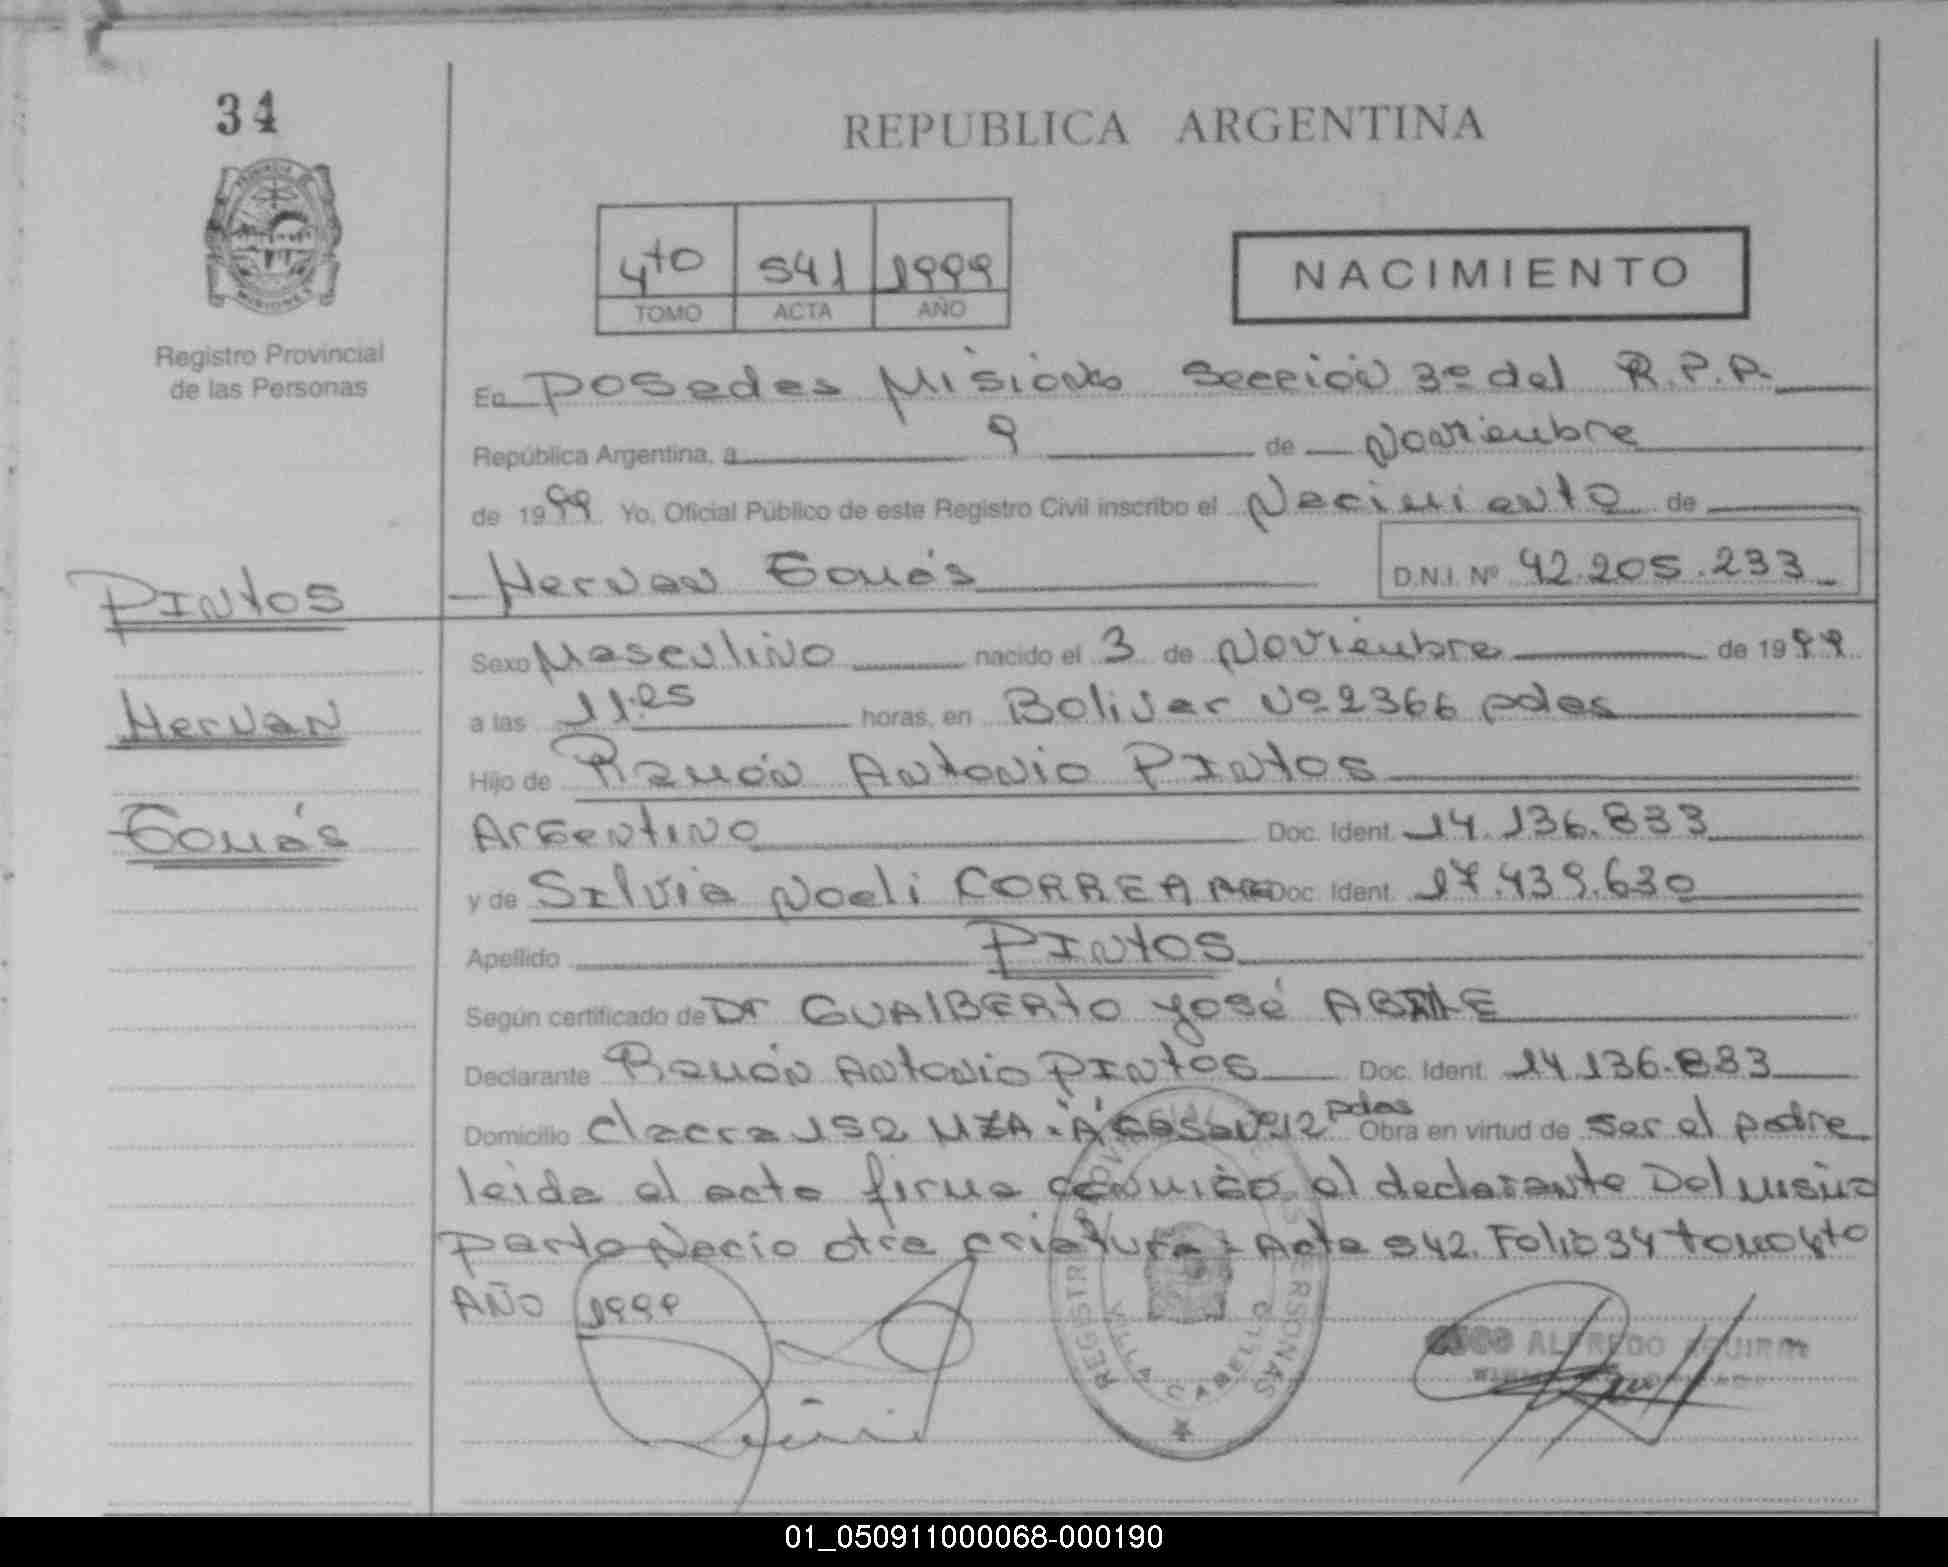 34
REPUBLICA ARGENTINA
4to 541 1999
TOMO ACTA AÑO
NACIMIENTO
MISIONES
Registro Provincial
de las Personas
En Posadas Misiones Sección 3º del R.P.P.
República Argentina, a 9 de Noviembre
de 1999 Yo, Oficial Público de este Registro Civil inscribo el Nacimiento de
Hernan Tomás D.N.I. Nº 42.205.233
PINtos
Hernan
Tomás
Sexo Masculino nacido el 3 de Noviembre de 1999
a las 11:25 horas, en Bolivar Nº 2366 pdas
Hijo de Ramón Antonio PINtos
Argentino Doc. Ident. 14.136.833
y de Silvia Noeli CORREA Doc. Ident. 17.439.630
Apellido PINtos
Según certificado de Dr GUAlBERto José
Declarante Ramón Antonio PINtos Doc. Ident. 14.136.833
Domicilio Chacra 152 MZA "A" Casa Nº 12 pdas Obra en virtud de ser el padre
leida el acta firma conmigo el declarante Del mismo
parto Nacio otra criatura - Acta 542. Folio 34 tomo 4to
AÑO 1999
REGISTRO PROVINCIAL DE LAS PERSONAS
VILLA CABELLO
ALFREDO AGUIRRE
01_050911000068-000190